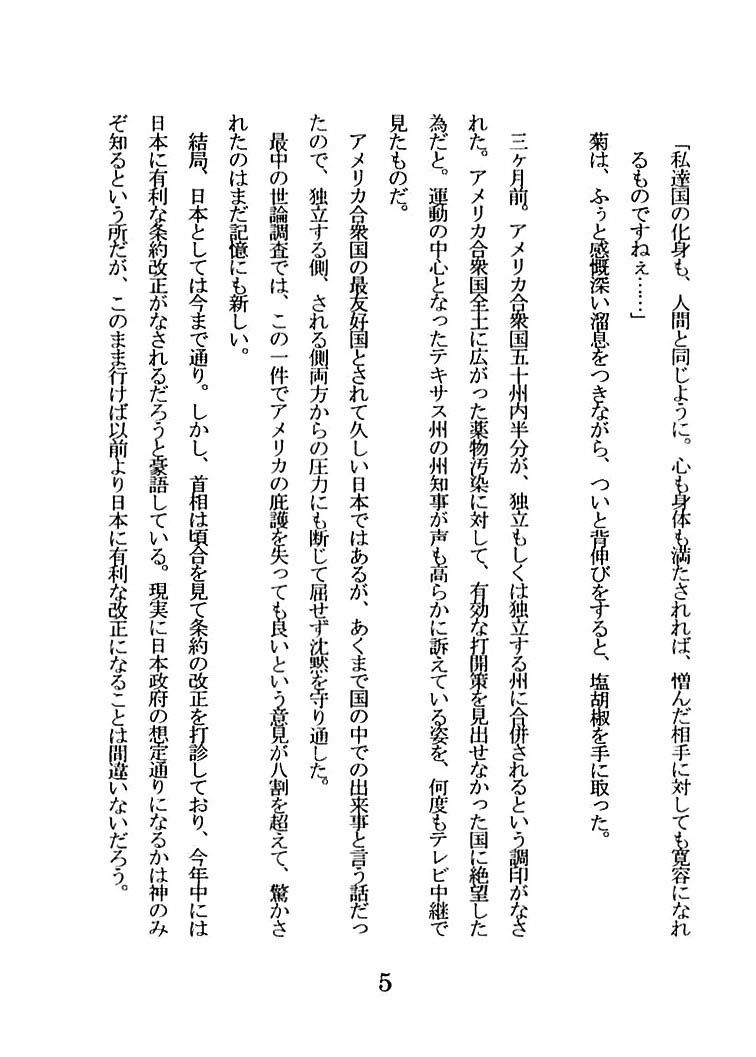 「私達国の化身も、人間と同じように。心も身体も満たされれば、憎んだ相手に対しても寛容になれ
るものですねぇ……」
菊は、ふぅと感慨深い溜息をつきながら、ついと背伸びをすると、塩胡椒を手に取った。
三ヶ月前。アメリカ合衆国五十州内半分が、独立もしくは独立する州に合併されるという調印がなさ
れた。アメリカ合衆国全土に広がった薬物汚染に対して、有効な打開策を見出せなかった国に絶望した
為だと。運動の中心となったテキサス州の州知事が声も高らかに訴えている姿を、何度もテレビ中継で
見たものだ。
アメリカ合衆国の最友好国とされて久しい日本ではあるが、あくまで国の中での出来事と言う話だっ
たので、独立する側、される側両方からの圧力にも断じて屈せず沈黙を守り通した。
最中の世論調査では、この一件でアメリカの庇護を失っても良いという意見が八割を超えて、驚かさ
れたのはまだ記憶にも新しい。
結局、日本としては今まで通り。しかし、首相は頃合を見て条約の改正を打診しており、今年中には
日本に有利な条約改正がなされるだろうと豪語している。現実に日本政府の想定通りになるかは神のみ
ぞ知るという所だが、このまま行けば以前より日本に有利な改正になることは間違いないだろう。
5